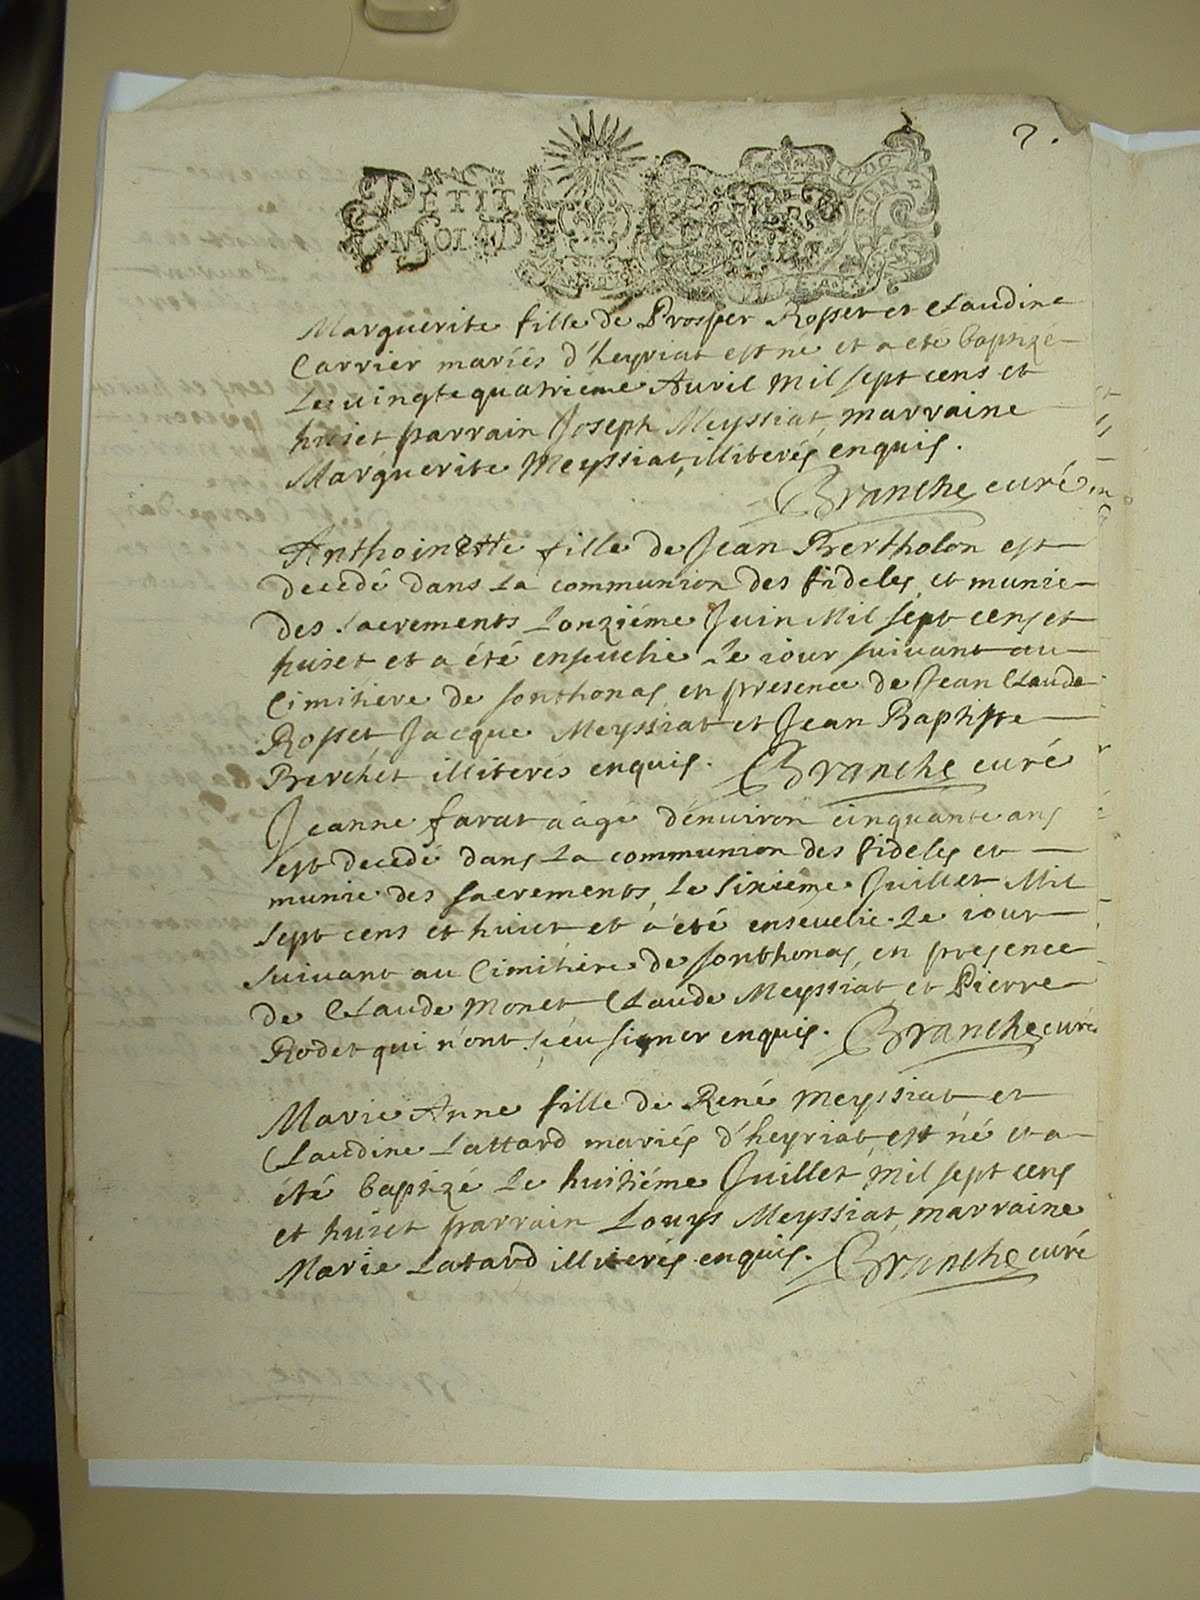 2.
PETIT
Marguerite fille de Prosper Rosset et Claudine
Carrier mariés d'heyriat est né et a eté baptizé
Le vingtequatriéme Avril Mil sept cens et
huict parrain Joseph Meyssiat, marraine
Marguerite Meyssiat, illiterés enquis.
Branche curé
Anthoinette fille de Jean Bertholon est
decedé dans La communion des fideles, et munie
des sacrements Lonziéme Juin Mil sept cens et
huict et a été enseuelie Le iour suiuant au
Cimitiere de Sonthonas en presence de Jean Claude
Rosset Jacque Meyssiat et Jean Baptiste
Berchet illiteres enquis. Branche curé
Jeanne farat aâgé d'enuiron cinquante ans
est decedé dans La communion des fideles et
munie des sacrements, Le Sixiéme Juillet Mil
sept cens et huict et a été enseuelie Le iour
suiuant au Cimitiére de Sonthonas, en presence
de Claude Monet, Claude Meyssiat, et Pierre
Rodet qui n'ont sçeu signer enquis. Branche curé
Marie Anne fille de René Meyssiat et
Claudine Lattard mariés d'heyriat est né et a
été baptizé Le huitiéme Juillet Mil sept cens
et huict parrain Louys Meyssiat, marraine
Marie Latard illiterés enquis. Branche curé